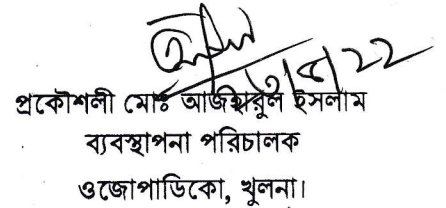 প্রকৌশলী মোঃ আজিহারুল ইসলাম
ব্যবস্থাপনা পরিচালক
ওজোপাডিকো, খুলনা।